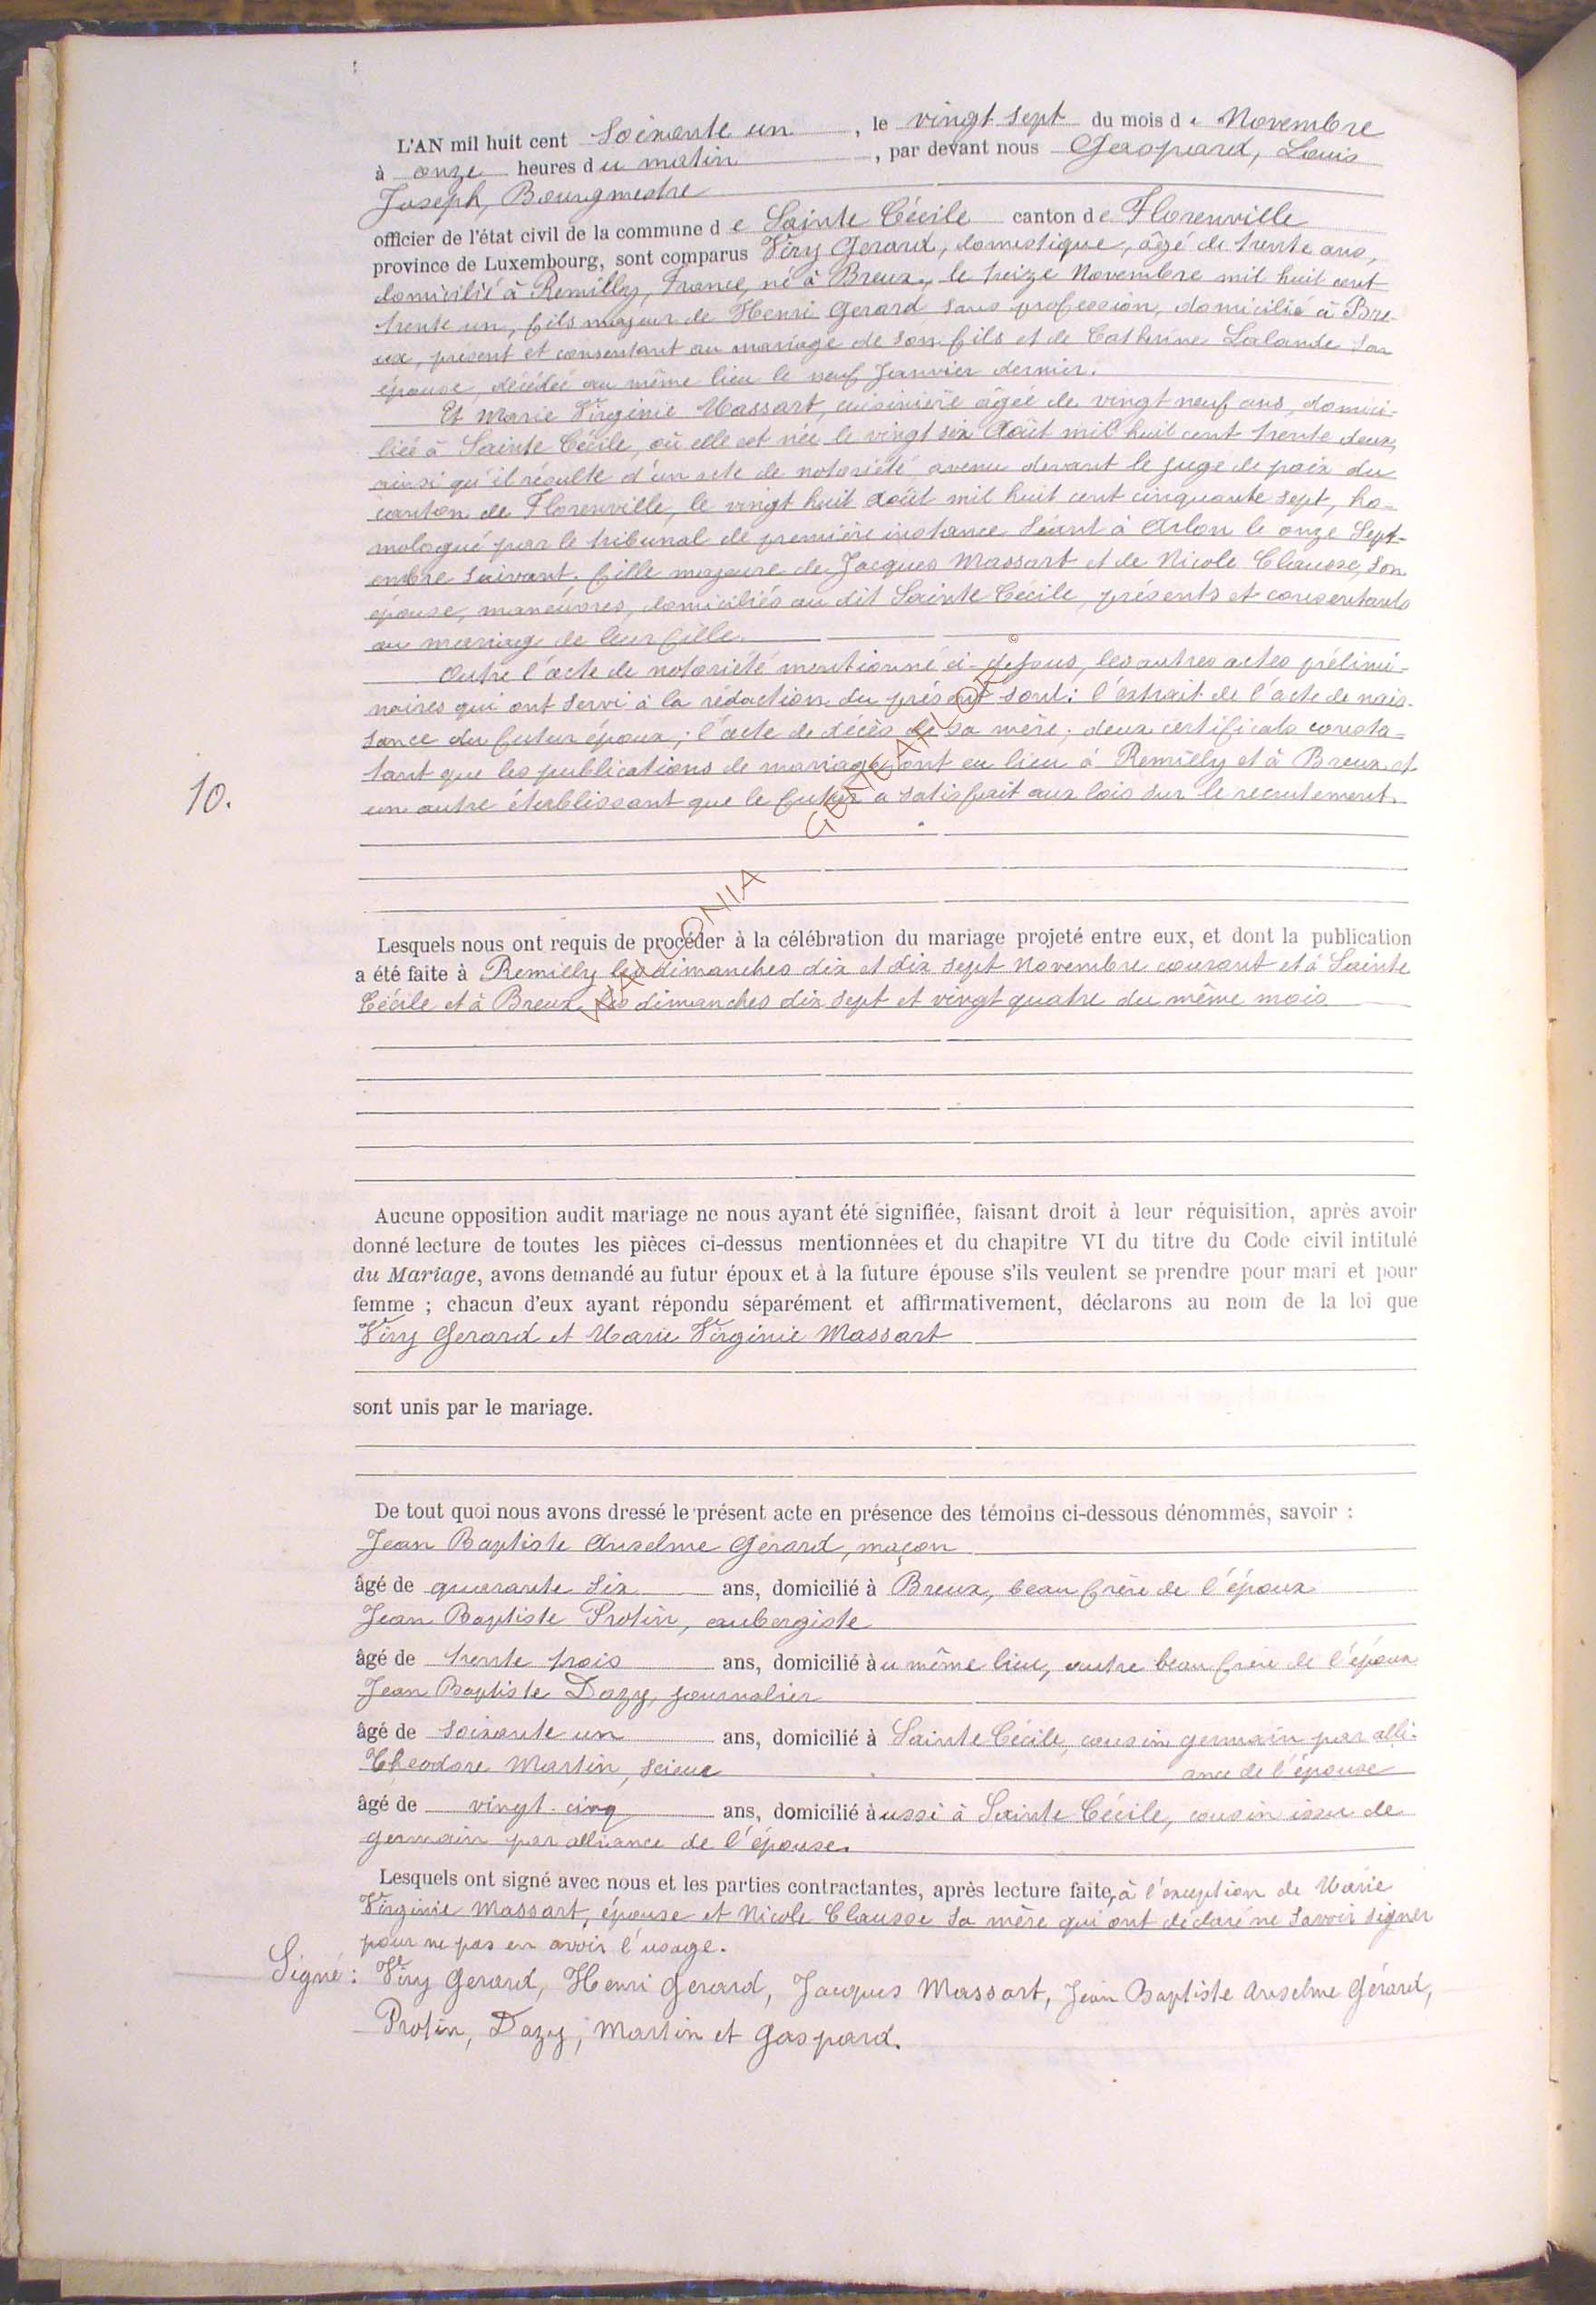 L'AN mil huit cent soixante un, le vingt sept du mois de Novembre
à onze heures du matin, par devant nous Gaspard, Louis
Joseph, Bourgmestre
officier de l'état civil de la commune de Sainte Cécile canton de Florenville
province de Luxembourg, sont comparus Viry Gerard, domestique, âgé de trente ans,
domicilié à Remilly, France, né à Breux, le treize Novembre mil huit cent
trente un, fils majeur de Henri Gerard sans profession, domicilié à Bre-
ux, présent et consentant au mariage de son fils et de Catherine Lalande son
épouse, décédée au même lieu le neuf Janvier dernier.
Et Marie Virginie Massart, cuisinière âgée de vingt neuf ans, domici-
liée à Sainte Cécile, où elle est née le vingt six Août mil huit cent trente deux,
ainsi qu'il résulte d'un acte de notoriété avenu devant le juge de paix du
canton de Florenville, le vingt huit Août mil huit cent cinquante sept, ho-
mologué par le tribunal de première instance séant à Arlon le onze Sept-
embre suivant. fille majeure de Jacques Massart et de Nicole Clausse, son
épouse, manœuvres, domiciliés au dit Sainte Cécile, présents et consentants
au mariag de leur fille.
Outre l'acte de notoriété mentionné ci-dessus, les autres actes prélimi-
naires qui ont servi à la rédaction du présent sont: l'extrait de l'acte de nais-
sance du futur époux; l'acte de décès de sa mère; deux certificats consta-
tant que les publications de mariage ont eu lieu à Remilly et à Breux et
10.
un autre établissant que le futur a satisfait aux lois sur le recrutement.
WALLONIA GENEAFLOR ©
Lesquels nous ont requis de procéder à la célébration du mariage projeté entre eux, et dont la publication
a été faite à Remilly les dimanches dix et dix sept Novembre courant et à Sainte
Cécile et à Breux les dimanches dix sept et vingt quatre du même mois
Aucune opposition audit mariage ne nous ayant été signifiée, faisant droit à leur réquisition, après avoir
donné lecture de toutes les pièces ci-dessus mentionnées et du chapitre VI du titre du Code civil intitulé
du Mariage, avons demandé au futur époux et à la future épouse s'ils veulent se prendre pour mari et pour
femme ; chacun d'eux ayant répondu séparément et affirmativement, déclarons au nom de la loi que
Viry Gerard et Marie Virginie Massart
sont unis par le mariage.
De tout quoi nous avons dressé le présent acte en présence des témoins ci-dessous dénommés, savoir :
Jean Baptiste Anselme Gerard, maçon
âgé de quarante six ans, domicilié à Breux, beau frère de l'époux
Jean Baptiste Protin, aubergiste
âgé de trente trois ans, domicilié au même lieu, autre beau frère de l'époux
Jean Baptiste Dazy, journalier
âgé de soixante un ans, domicilié à Sainte Cécile, cousin germain par alli-
Théodore Martin, scieur ance de l'épouse
âgé de vingt-cinq ans, domicilié aussi à Sainte Cécile, cousin issu de
germain par alliance de l'épouse.
Lesquels ont signé avec nous et les parties contractantes, après lecture faite, à l'exception de Marie
Virginie Massart, épouse et Nicole Clausse sa mère qui ont déclaré ne savoir signer
pour ne pas en avoir l'usage.
Signé: Viry Gerard, Henri Gerard, Jacques Massart, Jean Baptiste Anselme Gérard,
Protin, Dazy, Martin et Gaspard.